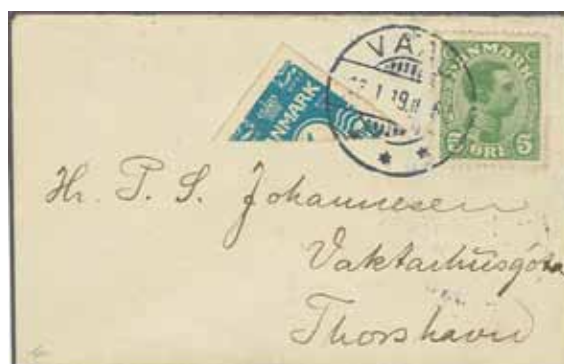 VA
DANMARK
DANMARK
1.19
5 ØRE 5
Hr. P. S. Johannesen
Vaktarhusgøta
Thorshavn